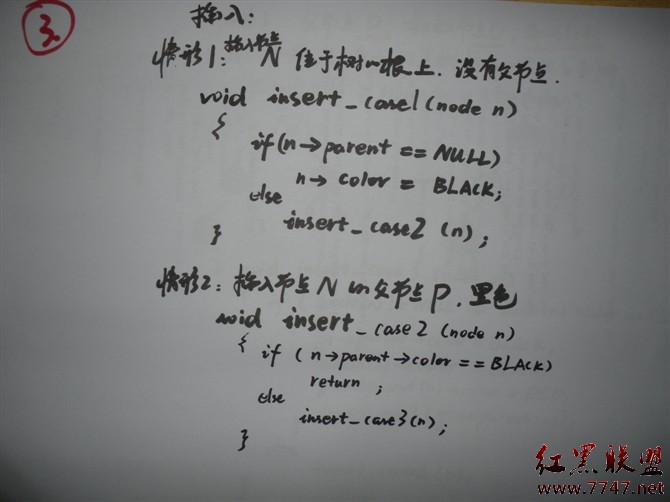 ③
插入:
情形1: 插入节点 N 位于树的根上. 没有父节点.
void insert_case1(node n)
{
if(n→parent == NULL)
n→ color = BLACK;
else
insert_case2 (n);
}
情形2: 插入节点 N 的父节点 P. 黑色
void insert_case2 (node n)
{ if ( n→parent→color == BLACK)
return ;
else
insert_case3(n);
}
红黑联盟
www.7747.net